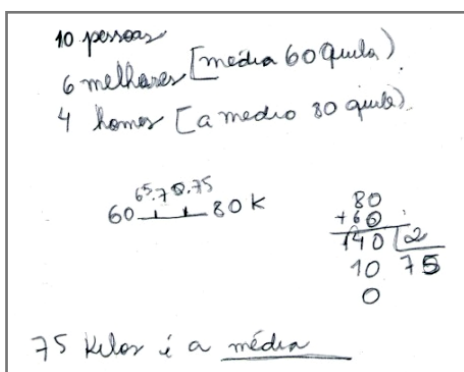 10 pessoas
6 melhares [média 60 quila)
4 homes [a medio 80 quilo).
65.70.75
60 80 K
80
+60
140 2
10 75
0
75 Kilos i a média